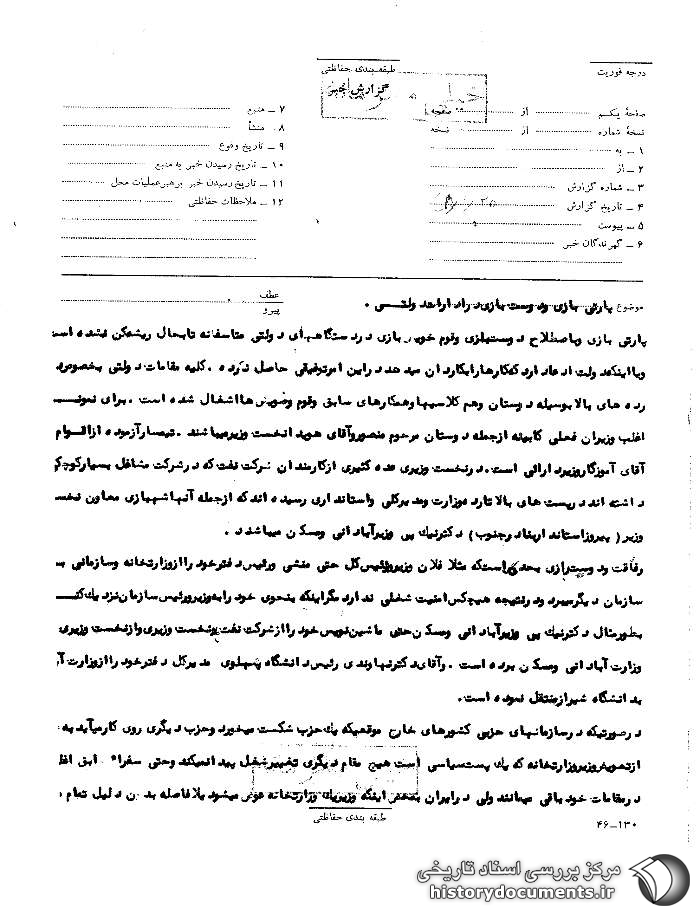 درجه فوریت
طبقه بندی حفاظتی
گزارش خبر
صفحهٔ یکم از صفحه
نسخهٔ شماره از نسخه
۱ ــ به
۲ ــ از
۳ ــ شماره گزارش
۴ ــ تاریخ گزارش
۵ ــ پیوست
۶ ــ گیرندگان خبر
۷ ــ منبع
۸ ــ منشأ
۹ ــ تاریخ وقوع
۱۰ ــ تاریخ رسیدن خبر به منبع
۱۱ ــ تاریخ رسیدن خبر برهبر عملیات محل
۱۲ ــ ملاحظات حفاظتی
موضوع پارتی بازی و دوست بازی در ادارات دولتی .
عطف
پیرو
پارتی بازی و باصطلاح دوست بازی و قوم خویش بازی در دستگاههای دولتی متاسفانه تابحال ریشه کن نشده است
و با اینکه دولت ادعا دارد که کارها را بکاردان میدهد در این امر توفیقی حاصل نکرده . کلیه مقامات دولتی بخصوص در
رده های بالا بوسیله دوستان و هم کلاسیها و همکارهای سابق و قوم و خویش ها اشغال شده است . برای نمونه
اغلب وزیران فعلی کابینه از جمله دوستان مرحوم منصور و آقای هویدا نخست وزیر میباشند . تیمسار آزموده از اقوام
آقای آموزگار وزیر دارائی است . در نخست وزیری عده کثیری از کارمندان شرکت نفت که در شرکت مشاغل بسیار کوچک
داشته اند در پست های بالا تا رده وزارت و مدیر کلی و استانداری رسیده اند که از جمله آنها شهبازی معاون نخست
وزیر ( پیروز استاندار بنادر جنوب ) دکتر نیک پی وزیر آبادانی و مسکن میباشند .
رفاقت و دوست بازی بحدی است که مثلا فلان وزیر و رئیس کل حتی منشی و رئیس دفتر خود را از وزارتخانه و سازمانی به
سازمان دیگر میبرد و در نتیجه هیچکس امنیت شغلی ندارد مگر اینکه بنحوی خود را به وزیر و رئیس سازمان نزدیک کند
بطور مثال دکتر نیک پی وزیر آبادانی و مسکن حتی ماشین نویس خود را از شرکت نفت به نخست وزیری و از نخست وزیری
وزارت آبادانی و مسکن برده است . و آقای دکتر نهاوندی رئیس دانشگاه پهلوی مدیر کل دفتر خود را از وزارت آ
بدانشگاه شیراز منتقل نموده است .
در صورتیکه در سازمانهای حزبی کشورهای خارج موقعیکه یک حزب شکست میخورد و حزب دیگری روی کار میآید به
از تعویض وزیر وزارتخانه که یک پست سیاسی است هیچ مقام دیگری تغییر شغل پیدا نمیکند و حتی سفراء
در مقامات خود باقی میمانند ولی در ایران بمحض اینکه وزیر یک وزارتخانه عوض میشود بلافاصله بدون دلیل تمام
طبقه بندی حفاظتی
۴۶-۱۳۰
مرکز بررسی اسناد تاریخی
historydocuments.ir